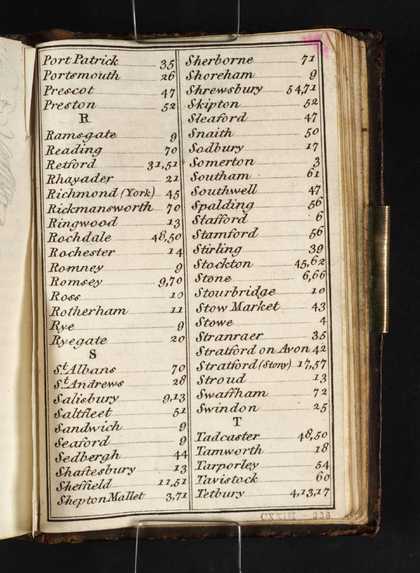 Port Patrick 35
Portsmouth 26
Prescot 47
Preston 52
R
Ramsgate 9
Reading 70
Retford 31,51
Rhayader 21
Richmond (York) 45
Rickmansworth 70
Ringwood 13
Rochdale 48,50
Rochester 14
Romney 9
Romsey 9,70
Ross 10
Rotherham 11
Rye 9
Ryegate 20
S
St. Albans 70
St. Andrews 28
Salisbury 9,13
Saltfleet 51
Sandwich 9
Seaford 9
Sedbergh 44
Shaftesbury 13
Sheffield 11,51
Shepton Mallet 3,71
Sherborne 71
Shoreham 9
Shrewsbury 54,71
Skipton 52
Sleaford 47
Snaith 50
Sodbury 17
Somerton 3
Southam 61
Southwell 47
Spalding 56
Stafford 6
Stamford 56
Stirling 39
Stockton 45,62
Stone 6,66
Stourbridge 10
Stow Market 43
Stowe 4
Stranraer 35
Stratford on Avon 42
Stratford (Stony) 17,57
Stroud 13
Swaffham 72
Swindon 25
T
Tadcaster 48,50
Tamworth 18
Tarporley 54
Tavistock 60
Tetbury 4,13,17